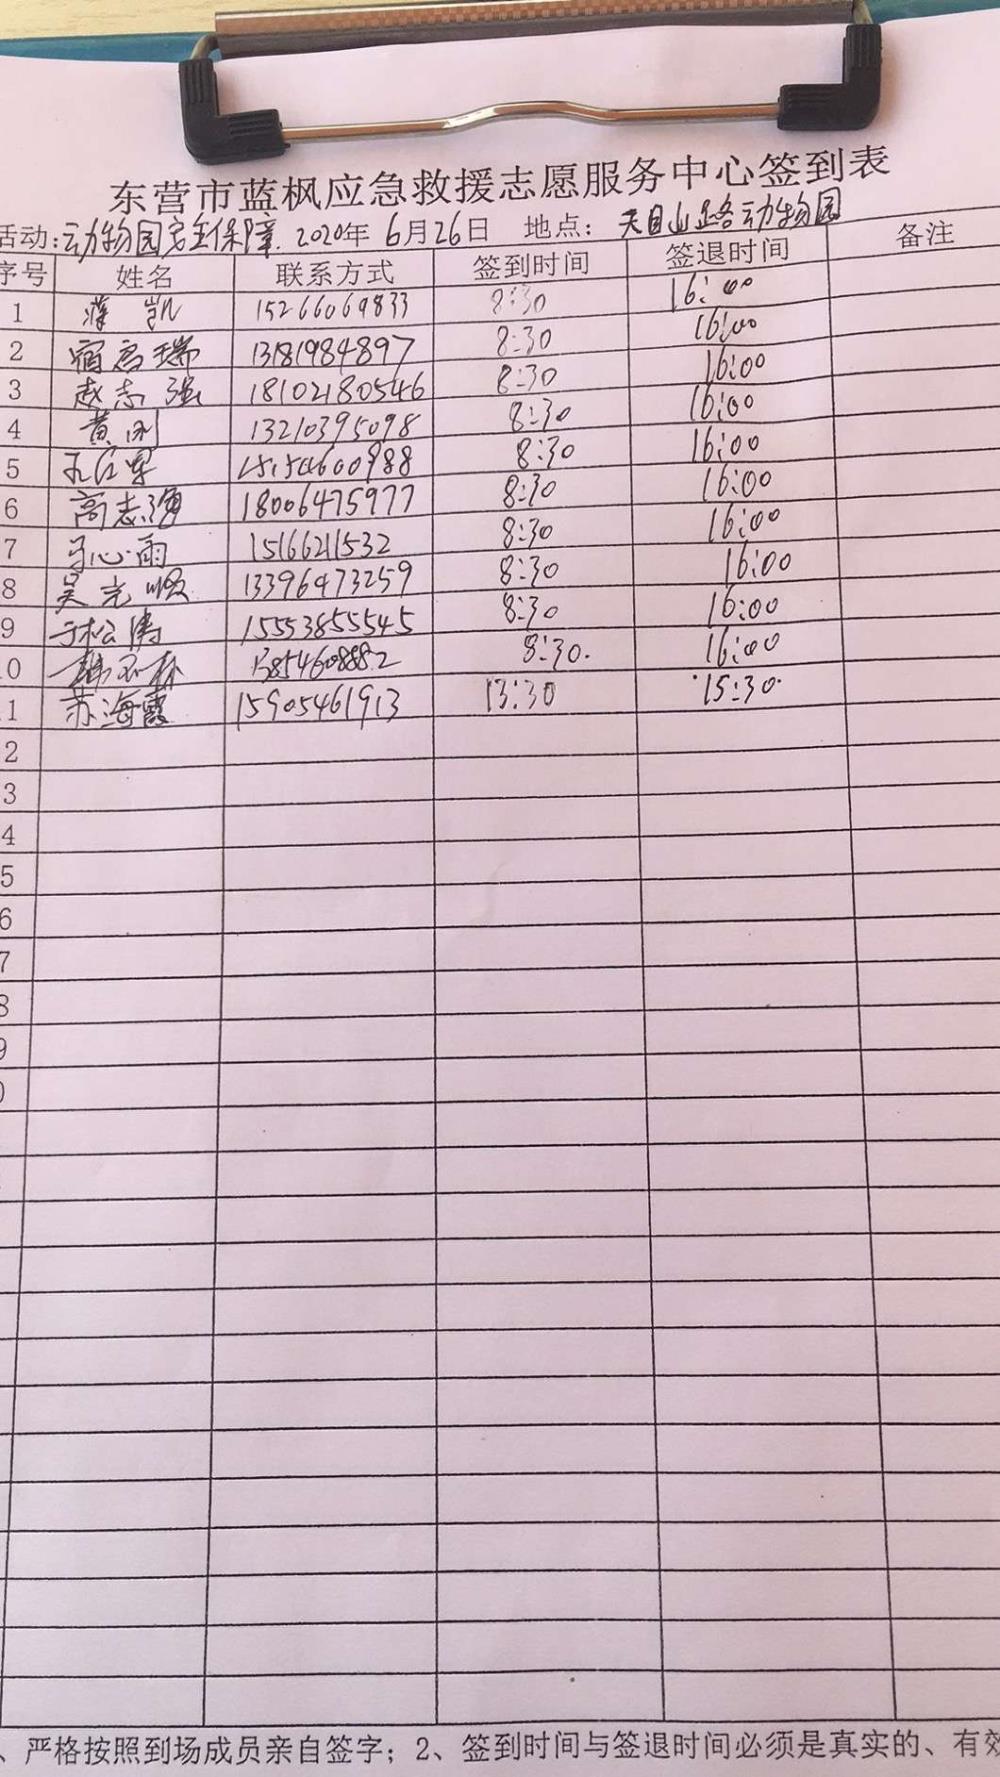 东营市蓝枫应急救援志愿服务中心签到表
活动:动物园安全保障. 2020年 6月26日 地点: 天目山路动物园
序号 姓名 联系方式 签到时间 签退时间 备注
1 蒋凯 15266069833 8:30 16:00
2 宿高瑞 13181984897 8:30 16:00
3 赵志强 18102180546 8:30 16:00
4 黄刚 13210395098 8:30 16:00
5 154600988 8:30 16:00
6 高志海 18006475977 8:30 16:00
7 马心雨 15166211532 8:30 16:00
8 吴光顺 13396473259 8:30 16:00
9 于松涛 15553855545 8:30 16:00
0 13854608882 8:30. 16:00
1 苏海霞 15905461913 13:30 15:30.
2
3
4
5
6
7
8
9
、严格按照到场成员亲自签字；2、签到时间与签退时间必须是真实的、有效